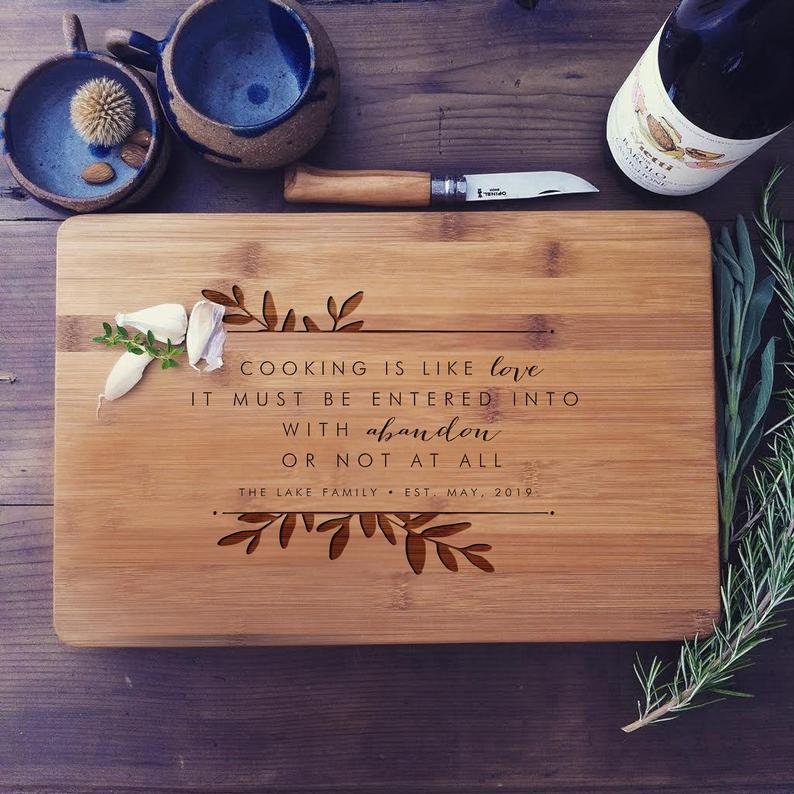 OPINEL
BAROLO
COOKING IS LIKE love
IT MUST BE ENTERED INTO
WITH abandon
OR NOT AT ALL
THE LAKE FAMILY • EST. MAY, 2019